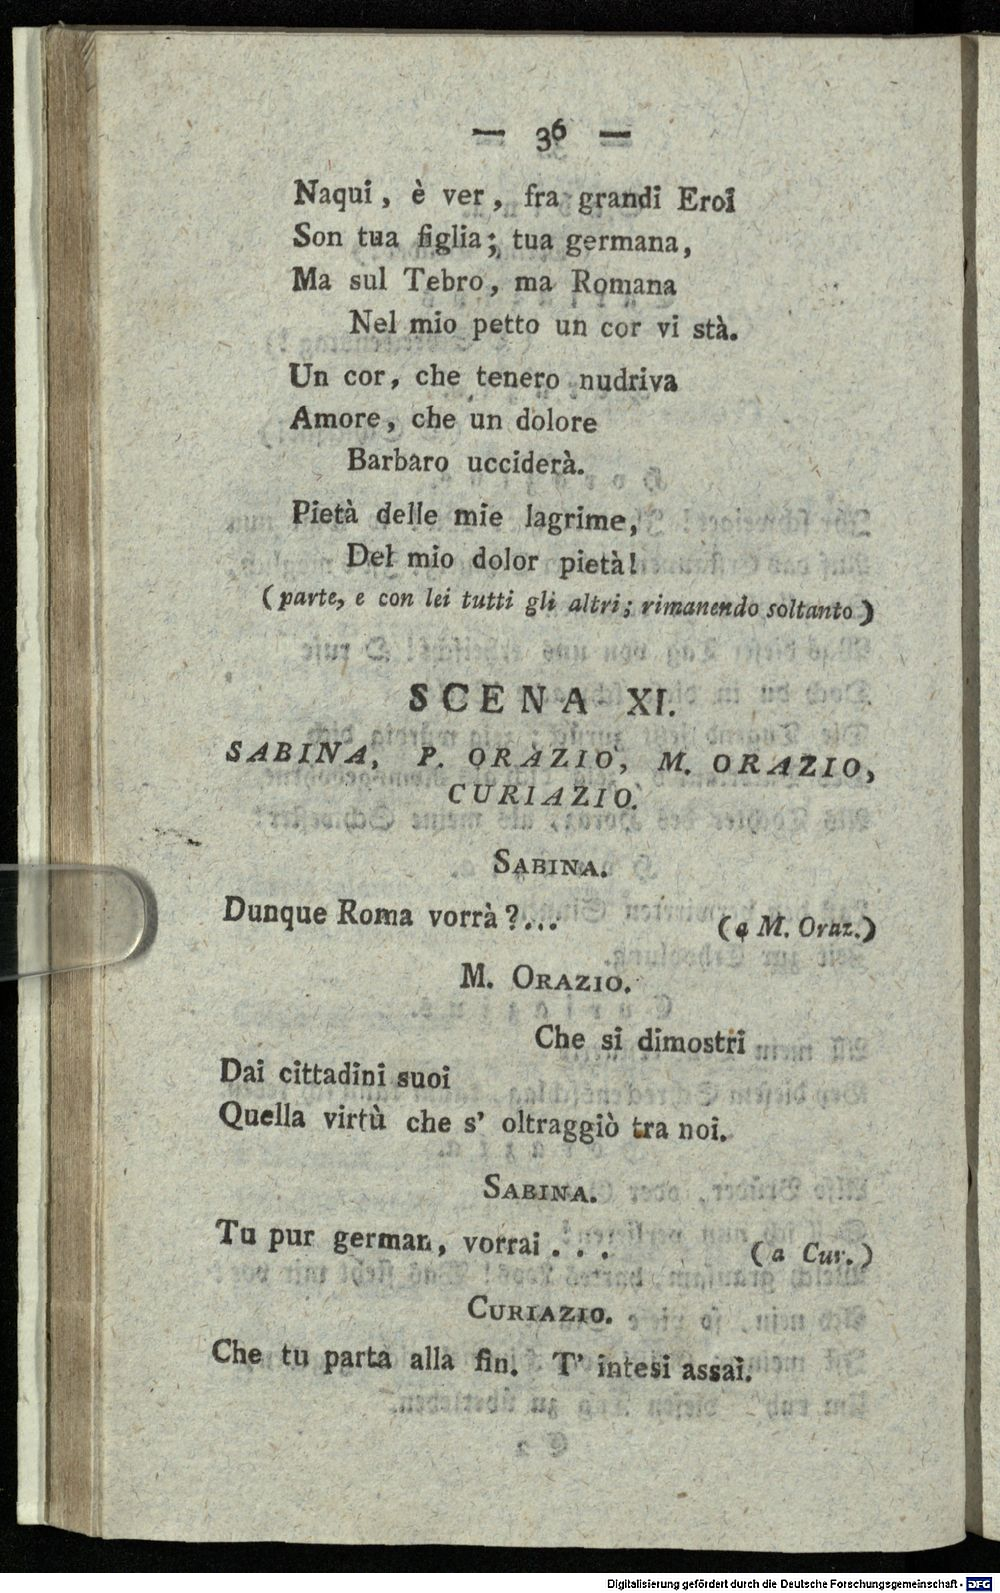 — 36 —
Naqui, è ver, fra grandi Eroi
Son tua figlia; tua germana,
Ma sul Tebro, ma Romana
Nel mio petto un cor vi stà.
Un cor, che tenero nudriva
Amore, che un dolore
Barbaro ucciderà.
Pietà delle mie lagrime,
Del mio dolor pietà!
(parte, e con lei tutti gli altri; rimanendo soltanto)
SCENA XI.
SABINA, P. ORAZIO, M. ORAZIO,
CURIAZIO.
SABINA.
Dunque Roma vorrà?... (a M. Oraz.)
M. ORAZIO.
Che si dimostri
Dai cittadini suoi
Quella virtù che s' oltraggiò tra noi.
SABINA.
Tu pur german, vorrai . . . (a Cur.)
CURIAZIO.
Che tu parta alla fin. T' intesi assai.
Digitalisierung gefördert durch die Deutsche Forschungsgemeinschaft - DFG